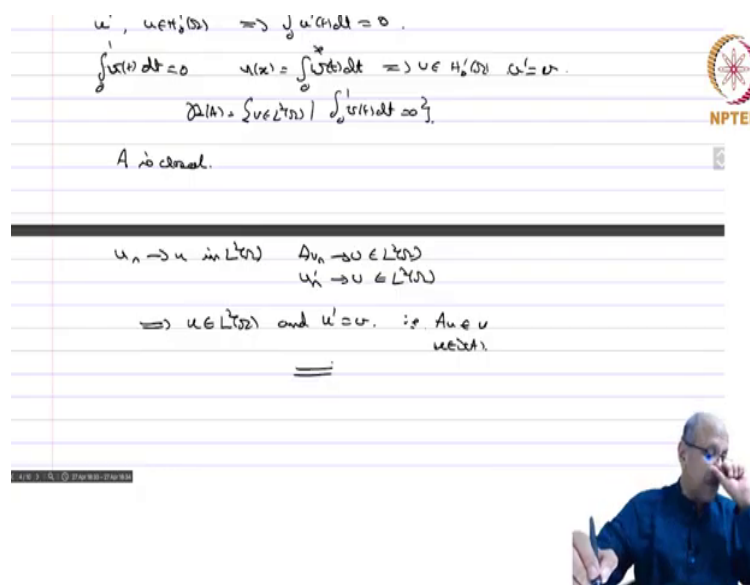 u', u∈H₀¹(Ω) ⟹ ∫₀¹ u'(t)dt = 0.
∫₀¹ v(t) dt = 0 u(x) = ∫₀ˣ v(t)dt ⟹ u∈ H₀¹(Ω) u' = v.
R(A) = {v∈L²(Ω) | ∫₀¹ v(t)dt = 0}.
NPTEL
A is closed.
uₙ → u in L²(Ω) Auₙ → v ∈ L²(Ω)
uₙ' → v ∈ L²(Ω)
⟹ u∈L²(Ω) and u' = v. i.e. Au = v
u∈D(A).